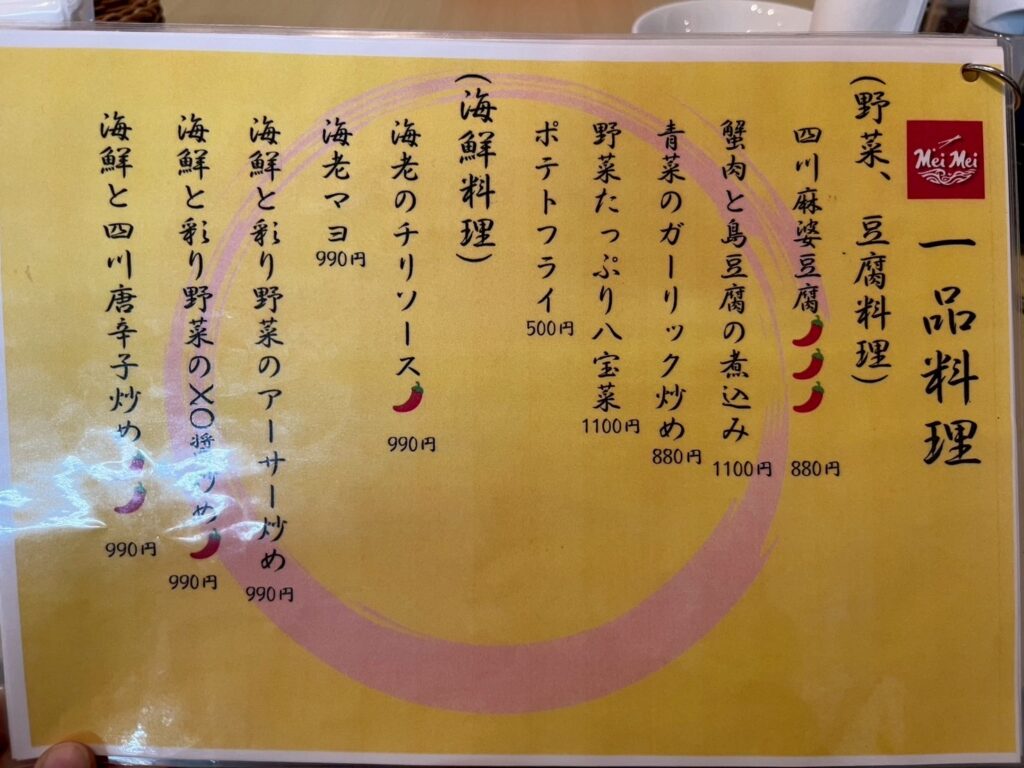 Mei Mei
一品料理
(野菜、豆腐料理)
四川麻婆豆腐
880円
蟹肉と島豆腐の煮込み
1100円
青菜のガーリック炒め
880円
野菜たっぷり八宝菜
1100円
ポテトフライ
500円
(海鮮料理)
海老のチリソース
990円
海老マヨ
990円
海鮮と彩り野菜のアーサー炒め
990円
海鮮と彩り野菜のXO醬炒め
990円
海鮮と四川唐辛子炒め
990円